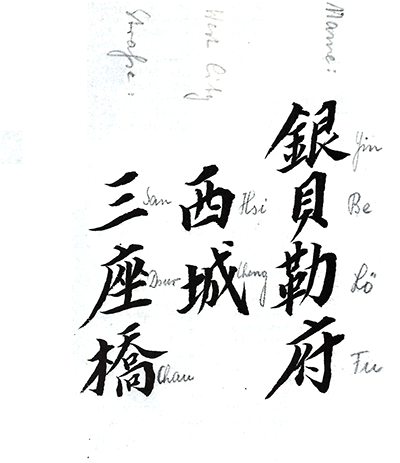 Name:
銀貝勒府
Yin Be Lö Fu
West City
西城
Hsi Cheng
Straße:
三座橋
San Dsuo Chau